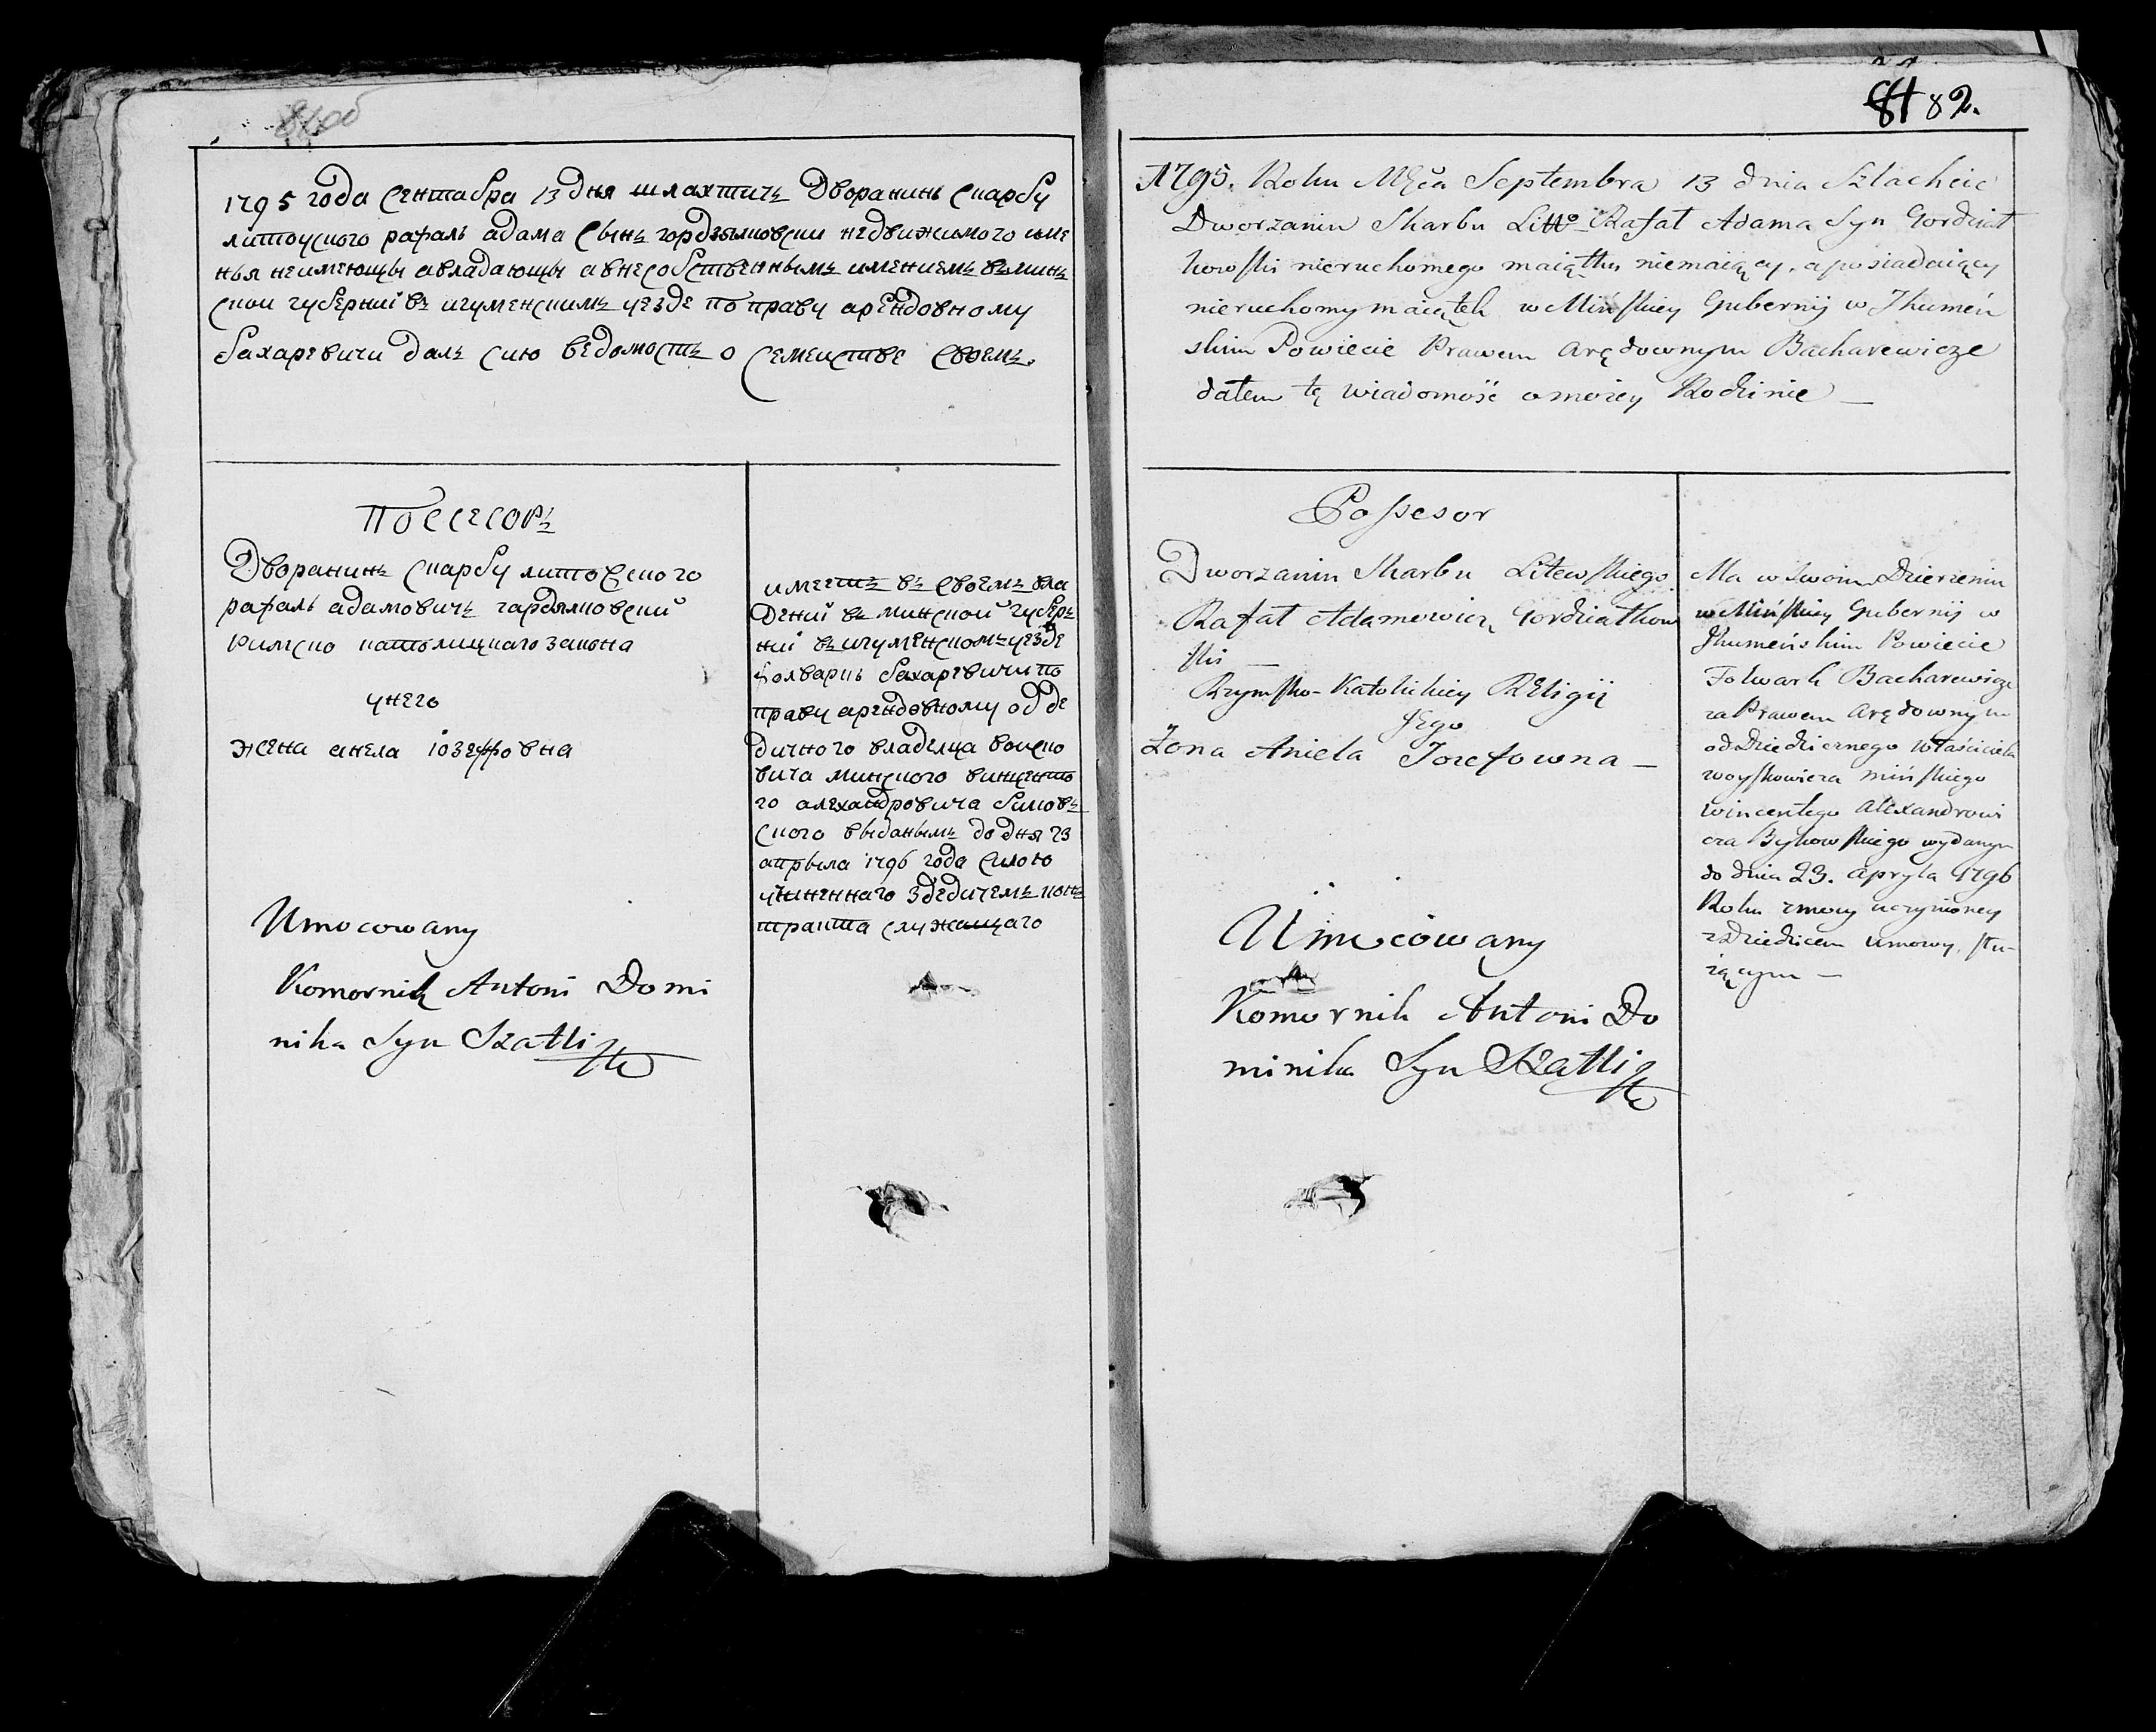 81об
1795 года сентабра 13 дня шлахтичъ дворанинъ скарбу
литоуского рафалъ адама сынъ гордзялковски недвижимого име
нья неимеющы авладающы а внесобственнымъ имениемъ вминъ
скои губернии въ игуменскимъ уезде по праву арендовному
бахаревичи далъ сию ведомость о семеистве своемъ.
поссесоръ
Дворанинъ скарбу литовского
рафалъ адамовичъ гардялковский
римско католицкаго закона
унего
жена анела іозефовна
Umocowany
Komornik Antoni Domi
nika Syn Szatti
имеетъ въ своемъ вла
дении въ минской губер
нии въ игуменскомъ уезде
фолваркъ бахаревичи по
праву арендовному од де
дичного владелца воиско
вича минского винценто
го александровича биков
ского выданымъ до дня 23
апрыла 1796 года силою
учиненнаго здедичемъ кон
тракта служащаго
82.
1795. Roku Mca Septembra 13 dnia Szlachcic
Dworzanin Skarbu Litto Rafał Adama Syn Gordziat
kowski nieruchomego maiątku niemaiący, a posiadaiący
nieruchomy maiątek w Mińskiey Gubernij w Jhumeń
skim Powiecie Prawem Arędownym Bacharewicze
dałem tę wiadomość o moiey Rodzinie —
Possesor
Dworzanin Skarbu Litewskiego
Rafał Adamowicz Gordziatkow
ski —
Rzymsko-Katolickiey Religij
Jego
Żona Aniela Jozefowna —
Umocowany
Komornik Antoni Do
minika Syn Szatti
Ma w swoim Dzierżeniu
w Mińskiey Gubernij w
Jhumeńskim Powiecie
Folwark Bacharewicze
za Prawem Arędownym
od Dziedzicznego Właściciela
woyskowicza mińskiego
Wincentego Alexandrowi
cza Bykowskiego wydanym
do dnia 23. Apryla 1796
Roku zmocy uczynioney
z Dziedzicem umowy, słu-
żącym —